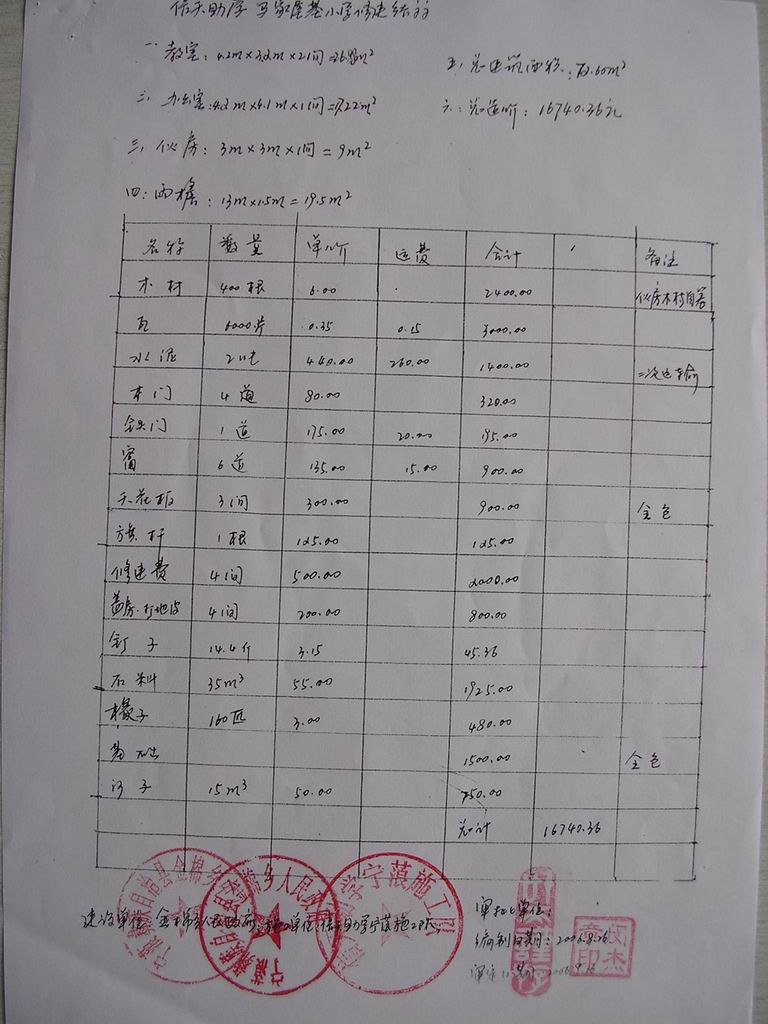 信天助学 马家屋基小学修建结算
一、教室: 4.2m×3.2m×2间=26.88m²
五、总建筑面积: 72.60m²
二、办公室: 4.2m×4.1m×1间=17.22m²
六: 总造价: 16740.36元
三、伙房: 3m×3m×1间=9m²
四: 雨檐: 13m×1.5m=19.5m²
名称 数量 单价 运费 合计 备注
木材 400根 6.00 2400.00 伙房木材自筹
瓦 6000片 0.35 0.15 3000.00
水泥 2吨 440.00 260.00 1400.00 二次运输
木门 4道 80.00 320.00
铁门 1道 175.00 20.00 195.00
窗 6道 135.00 15.00 900.00
天花板 3间 300.00 900.00 全包
旗杆 1根 125.00 125.00
修建费 4间 500.00 2000.00
盖房.打地皮 4间 200.00 800.00
钉子 14.4斤 3.15 45.36
石料 35m³ 55.00 1925.00
椽子 160匹 3.00 480.00
1500.00 全包
沙子 15m³ 50.00 750.00
总计 16740.36
建设单位: 金棉乡人民政府 施工单位: 信天助学宁蒗施工队
审批单位:
编制日期: 2006.8.26
宁蒗彝族自治县金棉乡人民政府
信天助学宁蒗施工队